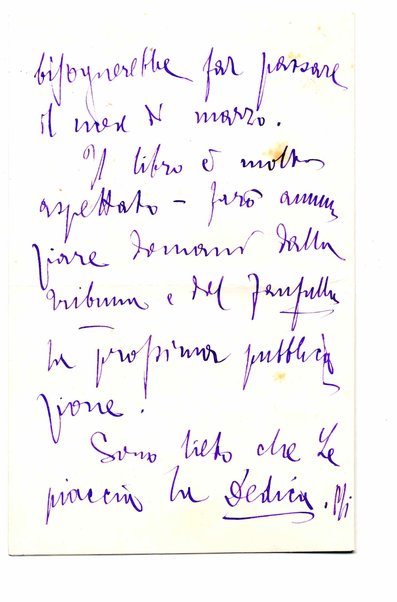 bisognerebbe far passare
il mese di marzo.
Il libro è molto
aspettato – farò annun
ziare domani dalla
Tribuna e dal Fanfulla
la prossima pubblica
zione.
Sono lieto che Le
piaccia la Dedica.